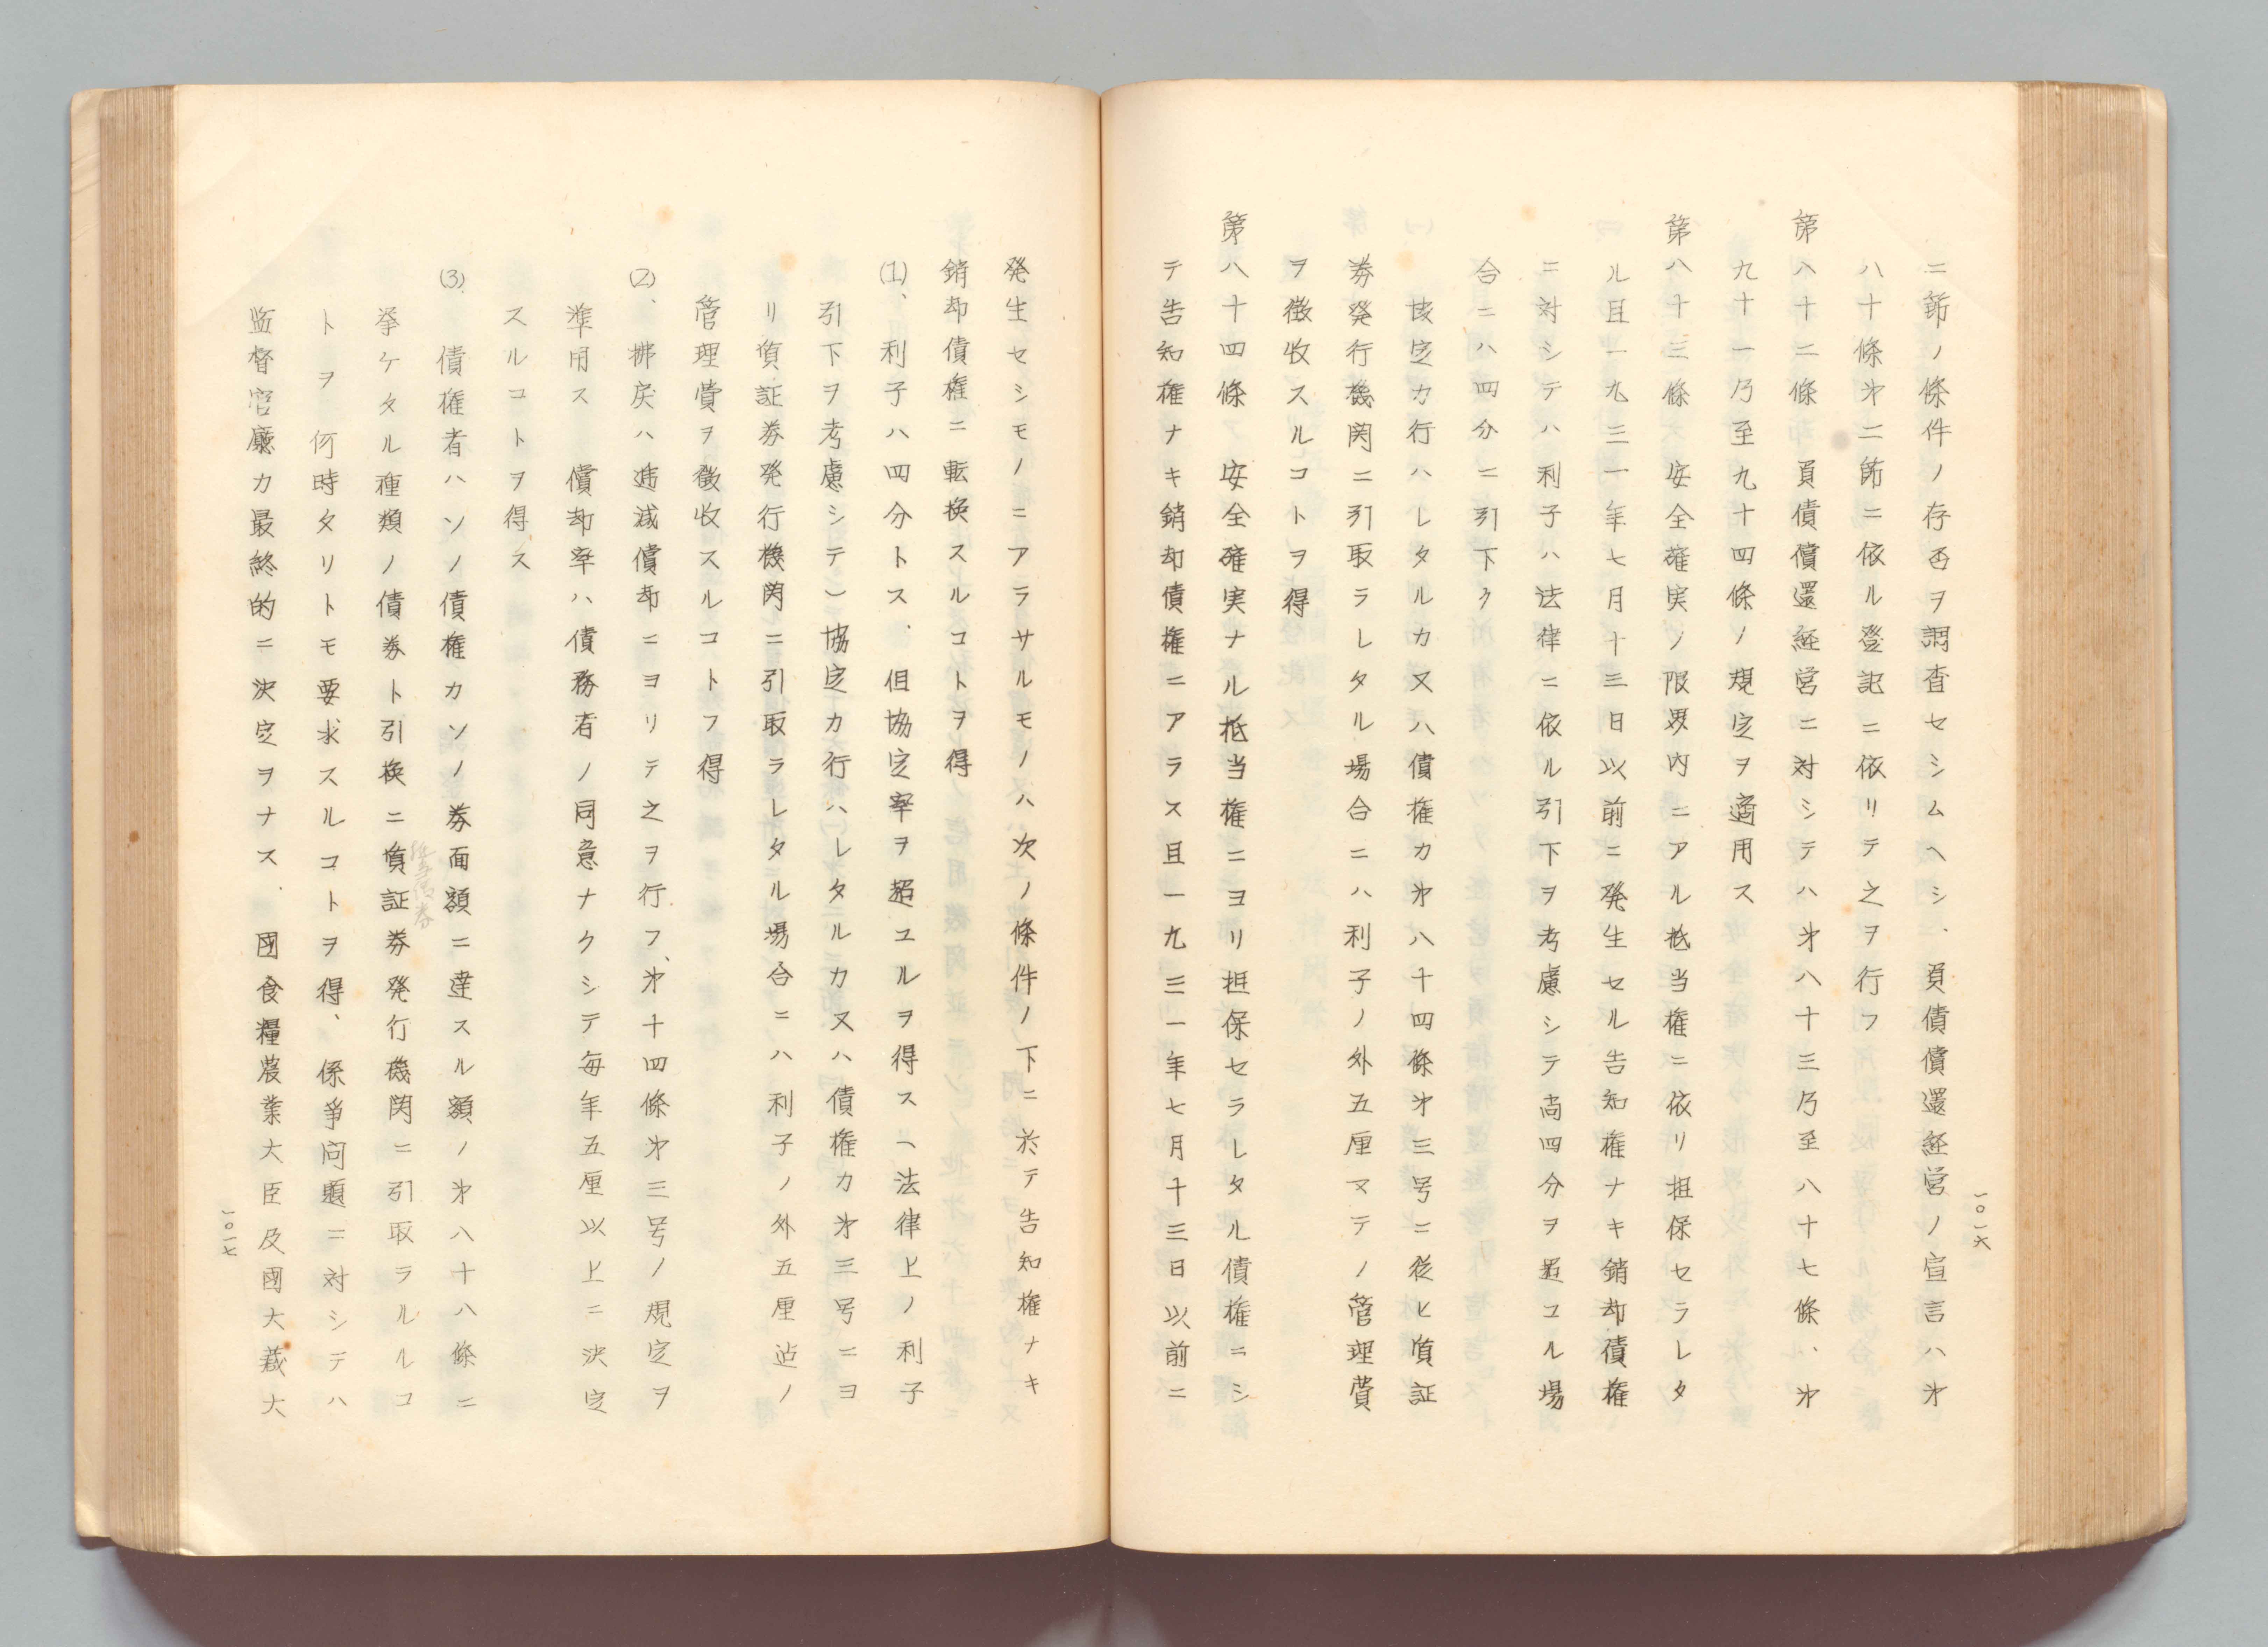 ニ節ノ條件ノ存否ヲ調査セシムヘシ、負債償還経営ノ宣言ハ㐧
八十條㐧二節ニ依ル登記ニ依リテ之ヲ行フ
第八十二條 負債償還経営ニ対シテハ㐧八十三乃至八十七條、㐧
九十一乃至九十四條ノ規定ヲ適用ス
第八十三條 安全確実ノ限界内ニアル抵当権ニ依リ担保セラレタ
ル且一九三一年七月十三日以前ニ発生セル告知権ナキ銷却債権
ニ対シテハ利子ハ法律ニ依ル引下ヲ考慮シテ尚四分ヲ超コル場
合ニハ四分ニ引下ク
協定カ行ハレタルカ又ハ債権カ㐧八十四條㐧三号ニ従ヒ質証
券発行機関ニ引取ラレタル場合ニハ利子ノ外五厘マテノ管理費
ヲ徴收スルコトヲ得
第八十四條 安全確実ナル抵当権ニヨリ担保セラレタル債権ニシ
テ告知権ナキ銷却債権ニアラス且一九三一年七月十三日以前ニ
一〇一六
発生セシモノニアラサルモノハ次ノ條件ノ下ニ於テ告知権ナキ
銷却債権ニ転換スルコトヲ得
(1)、利子ハ四分トス、但協定率ヲ超ユルヲ得ス(法律上ノ利子
引下ヲ考慮シテ)協定カ行ハレタルカ又ハ債権カ㐧三号ニヨ
リ質証券発行機関ニ引取ラレタル場合ニハ利子ノ外五厘迠ノ
管理費ヲ徴收スルコトフ得
(2)、拂戻ハ逓減償却ニヨリテ之ヲ行フ、㐧十四條㐧三号ノ規定ヲ
準用ス 償却率ハ債務者ノ同意ナクシテ毎年五厘以上ニ決定
スルコトヲ得ス
(3) 債権者ハソノ債権カソノ券面額ニ達スル額ノ㐧八十八條ニ
挙ケタル種類ノ債券ト引換ニ質証券発行機関ニ引取ラルルコ
トヲ何時タリトモ要求スルコトヲ得、係爭问題ニ対シテハ
监督官廰カ最終的ニ決定ヲナス、國食糧農業大臣及國大蔵大
一〇一七